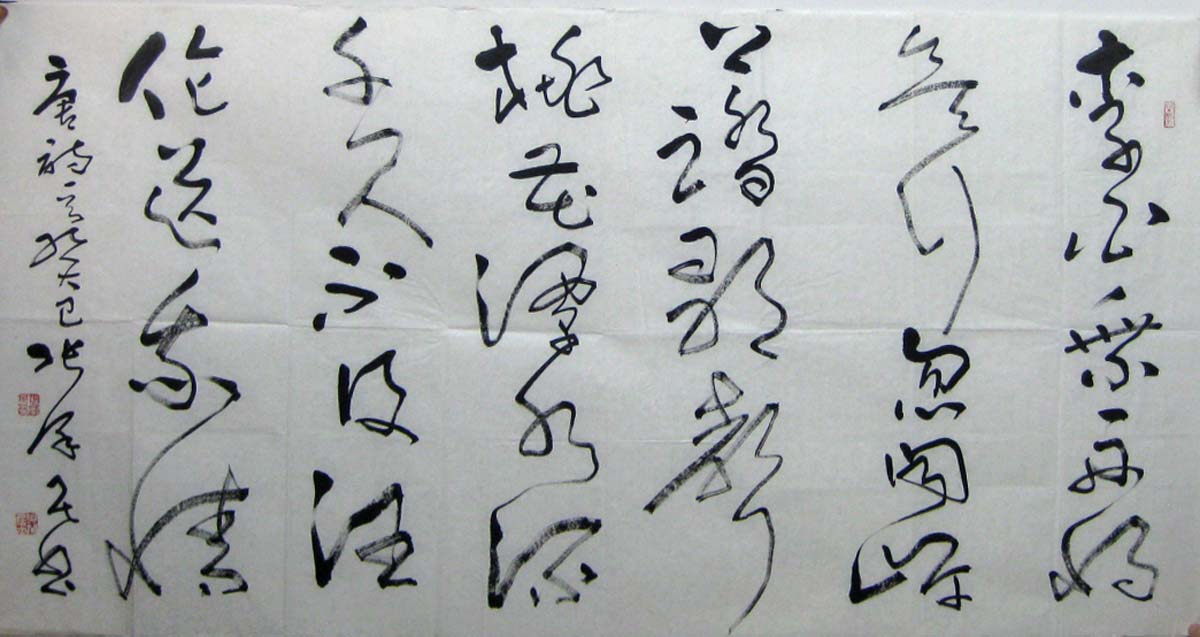 李白乘舟将
欲行忽闻岸
上踏歌声
桃花潭水深
千尺不及汪
伦送我情
唐诗 癸巳 张 书